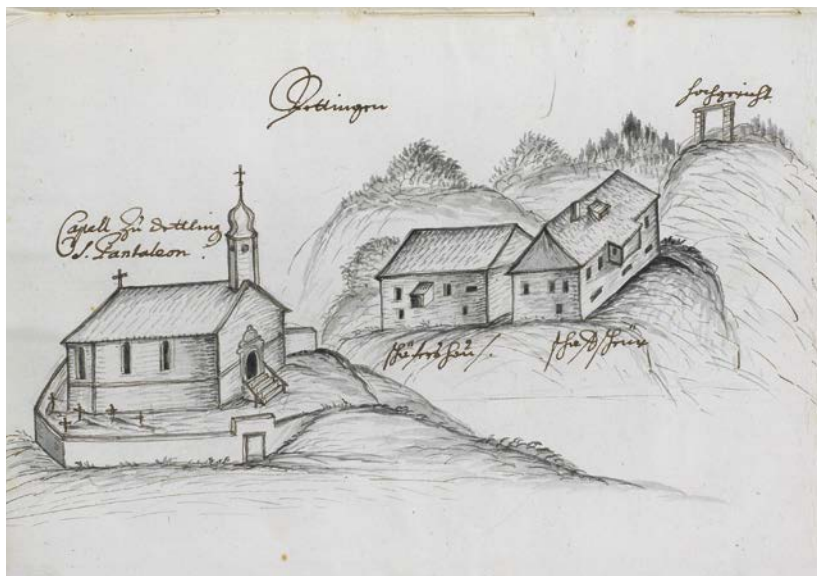 Dettingen
hochgericht
Capell Zu dettling
S. Pantaleon.
schäfershauß.
schaffscheür